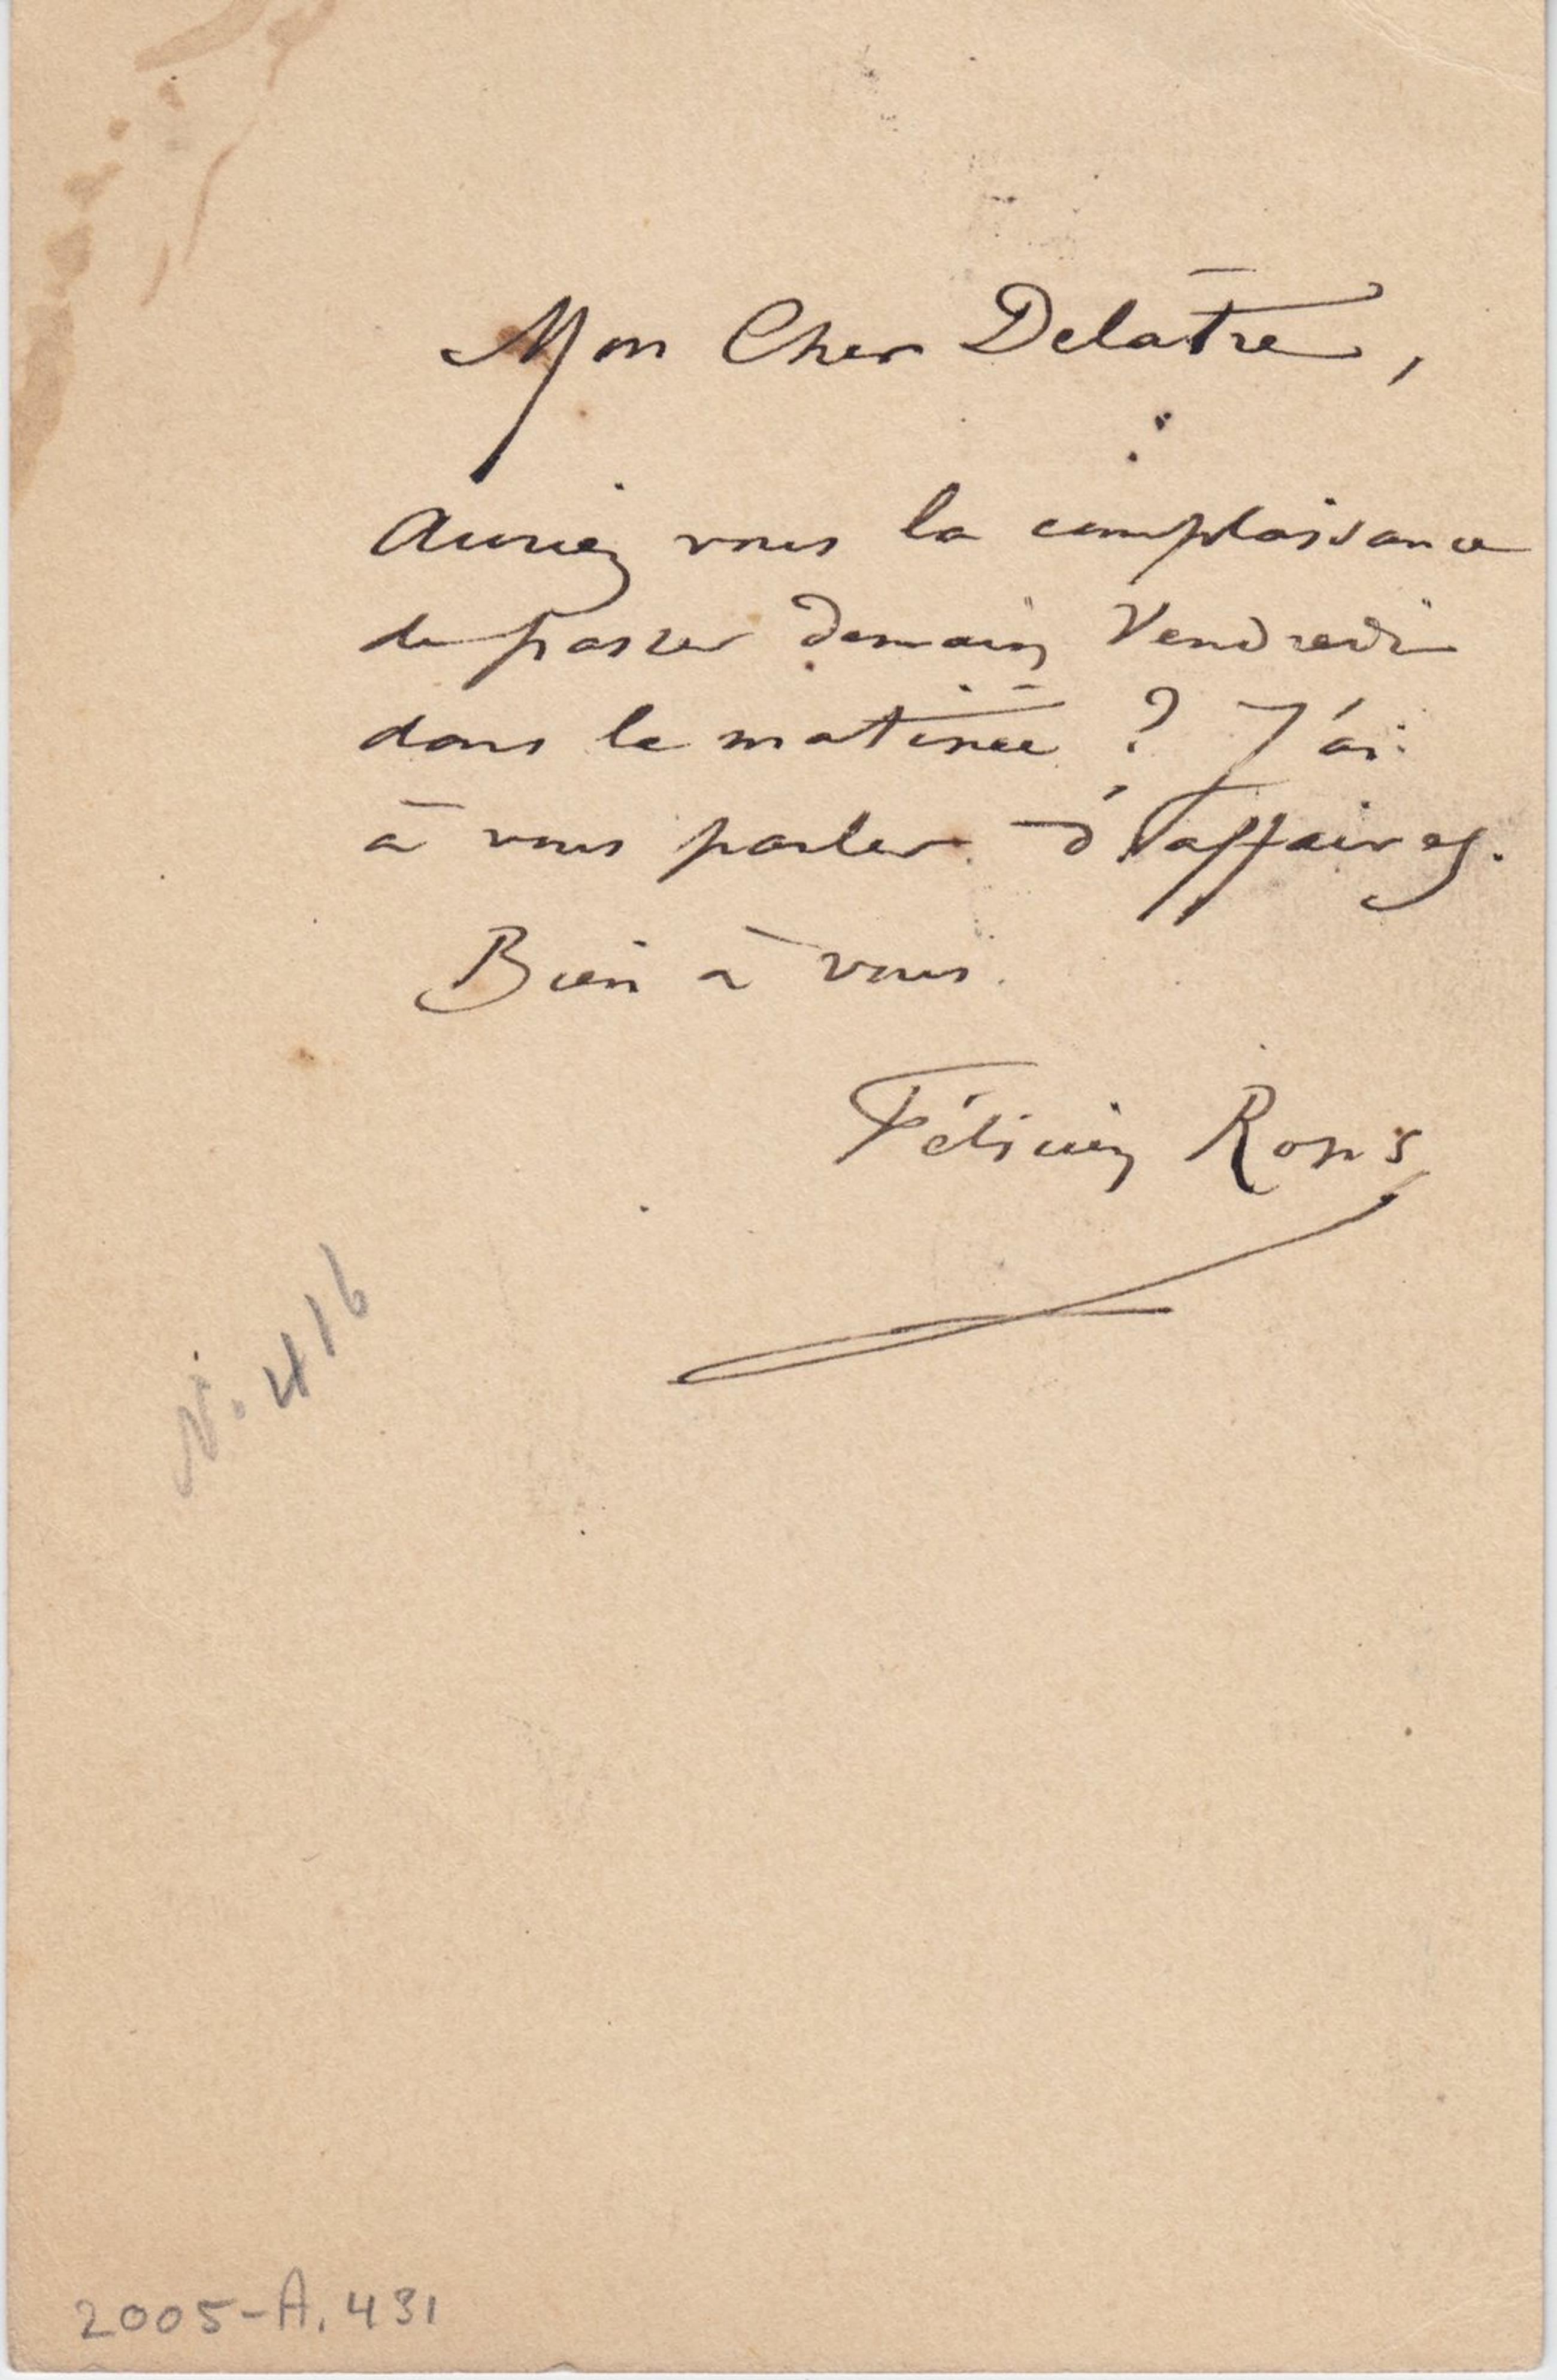 Mon Cher Delâtre,
Auriez vous la complaisance
de passer demain Vendredi
dans la matinée ? J'ai
à vous parler d'affaires.
Bien à vous.
Félicien Rops
N. 416
2005-A.431